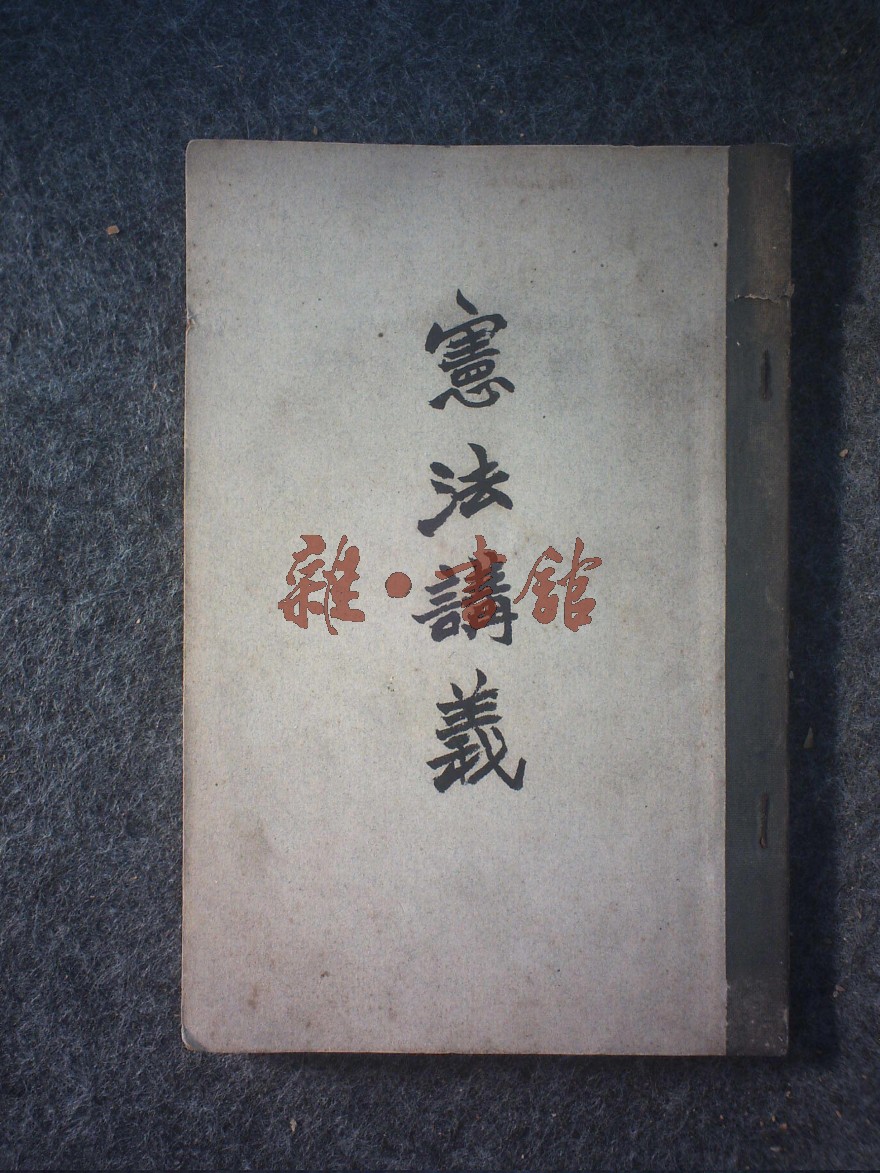 憲法講義
雜·書館